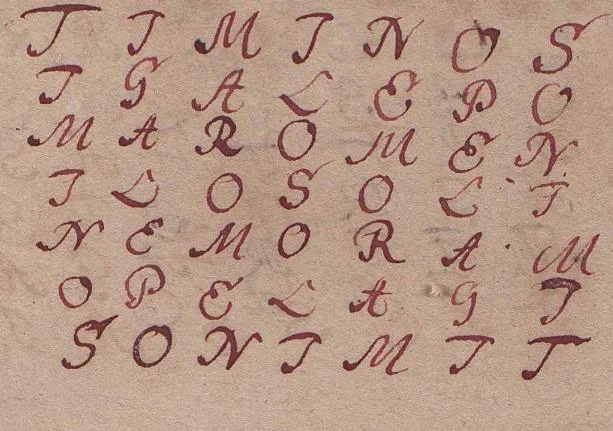 T I M I N O S
I G A L E P O
M A R O M E N
I L O S O L I
N E M O R A M
O P E L A G I
S O N I M I T